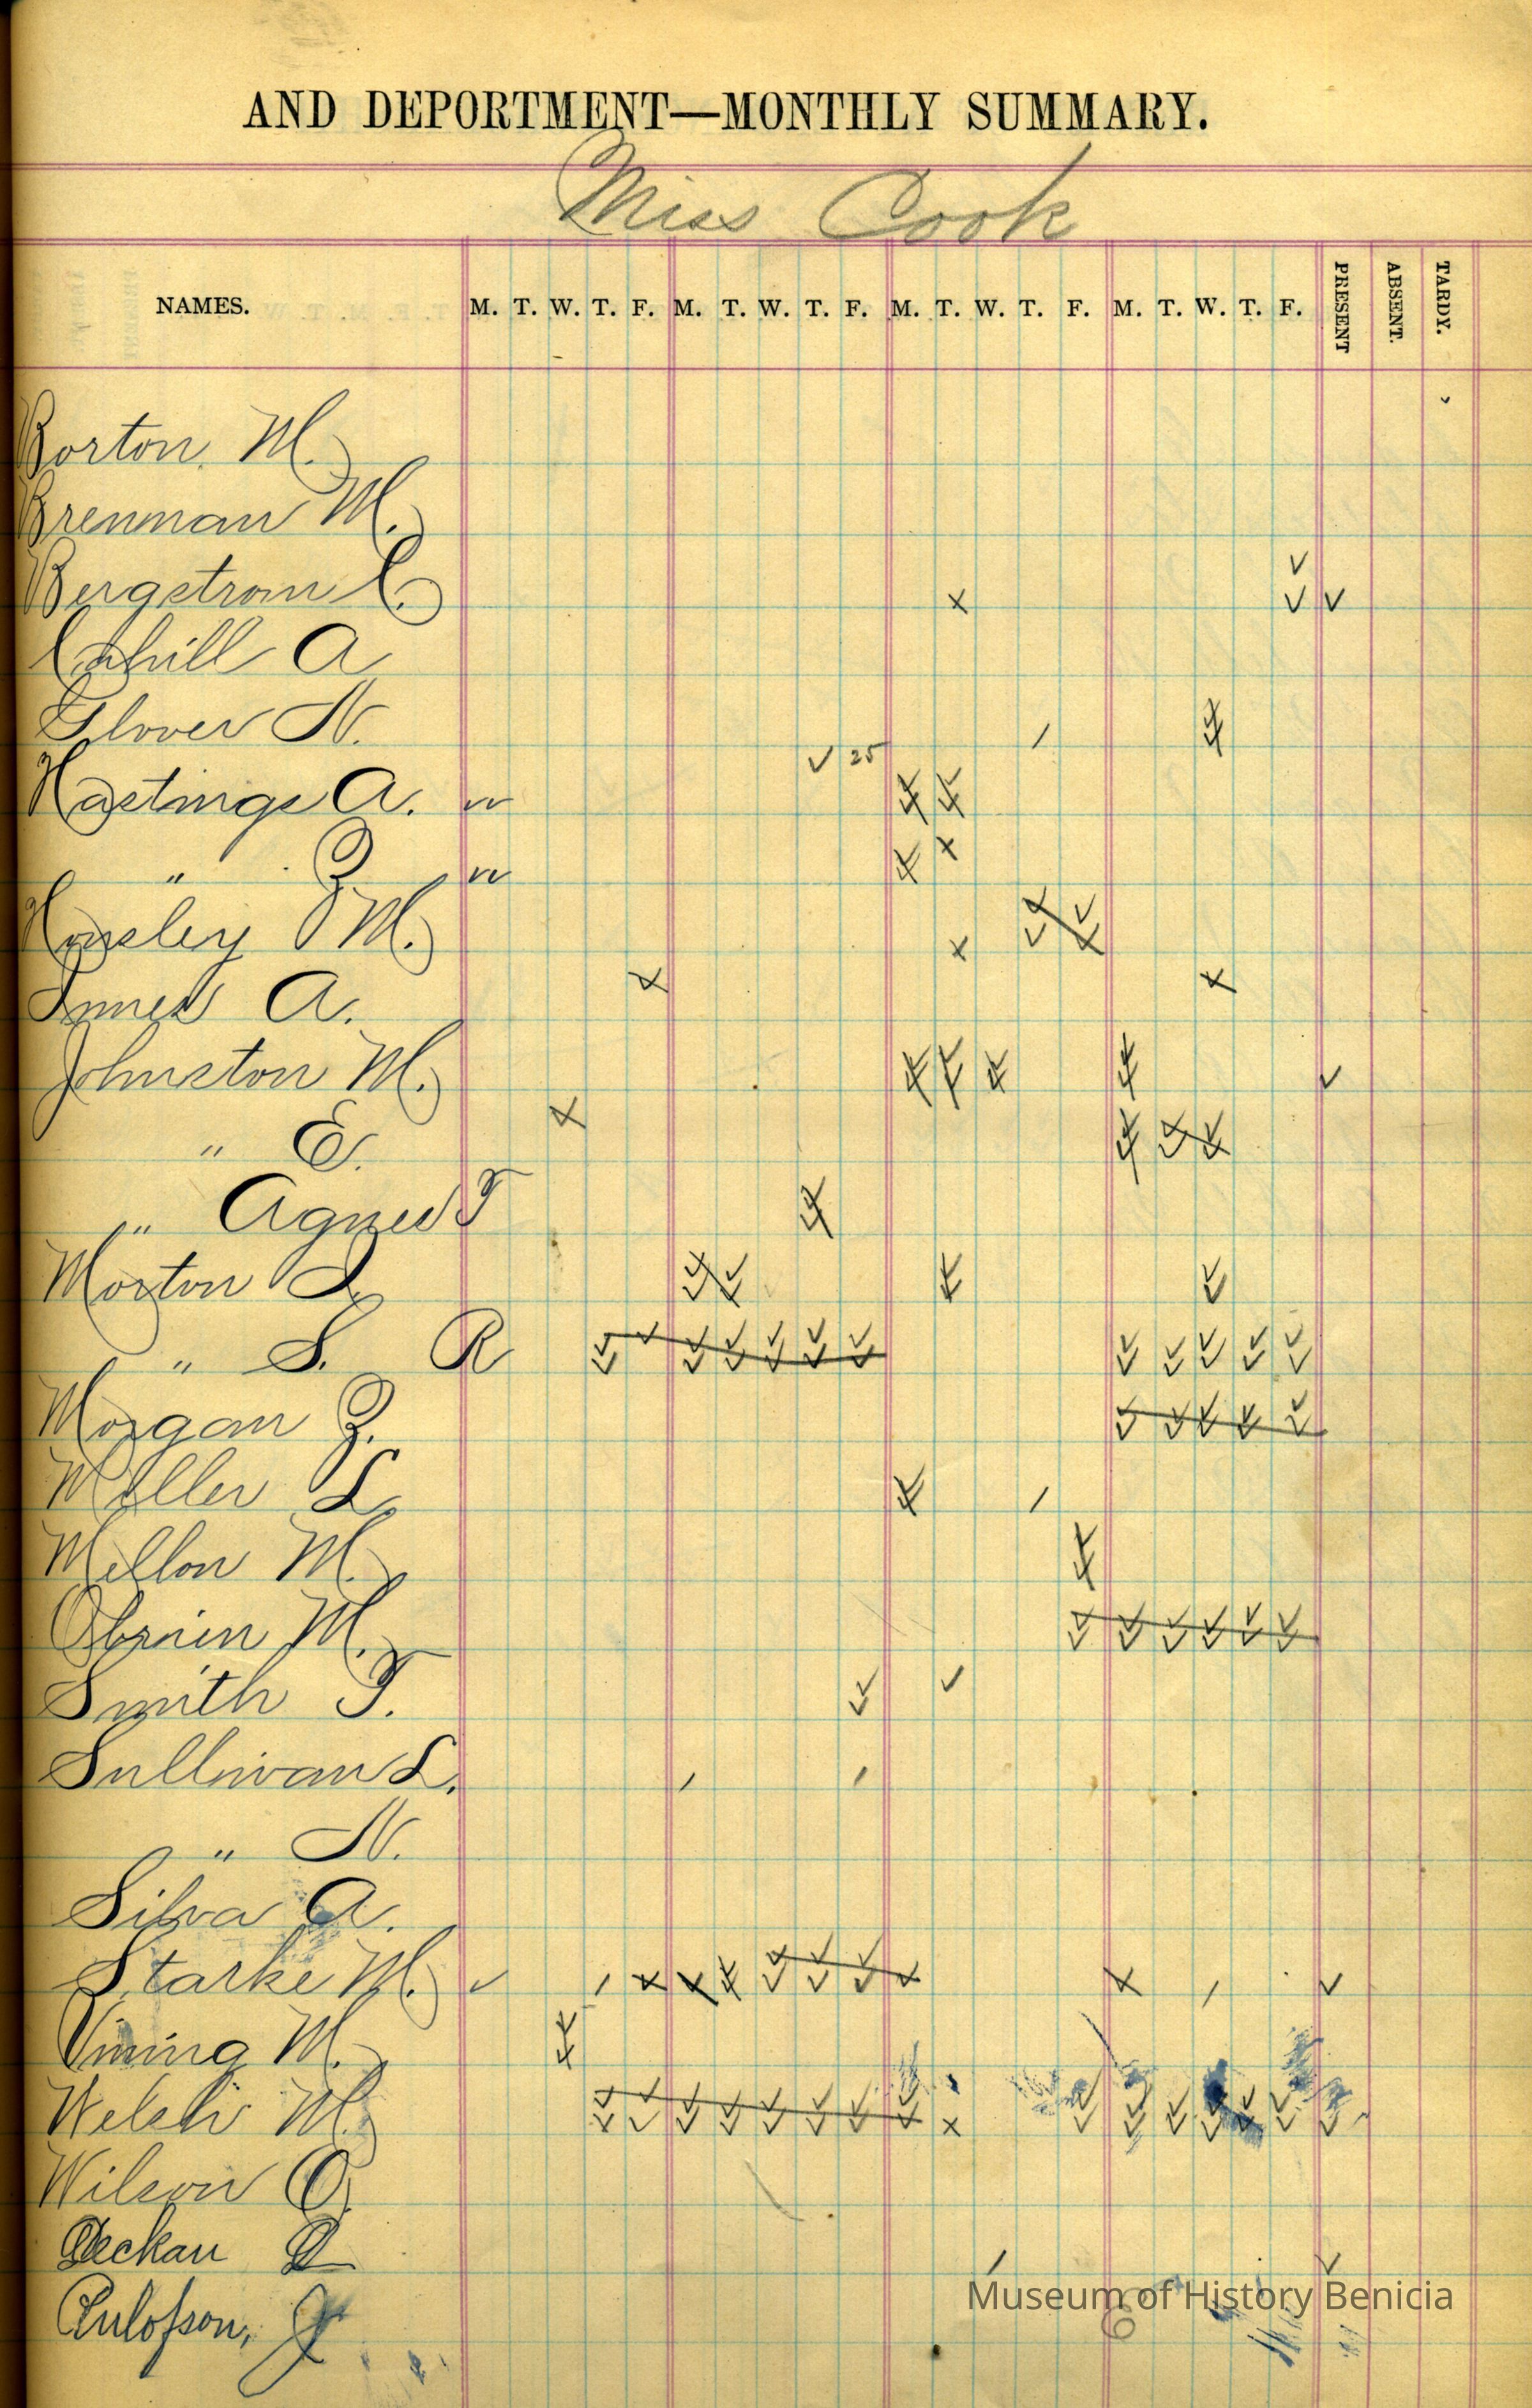 AND DEPORTMENT—MONTHLY SUMMARY.
Miss Cook
NAMES. M. T. W. T. F. M. T. W. T. F. M. T. W. T. F. M. T. W. T. F. PRESENT ABSENT. TARDY.
Borton M.
Brennan M.
Bergstrom C.
Cahill A
Glover N.
✓ 25
Hastings A.
" Z
Housley M.
Innes A.
Johnston M.
" E.
" Agnes T
Morton I.
" S. R
Morgan Z.
Miller L
Mellon M.
Obrien M.
Smith T.
Sullivan L.
" N.
Silva A.
Starke M.
Vining M.
Welch M.
Wilson O.
Deckau D
Pulofson, J
Museum of History Benicia
69